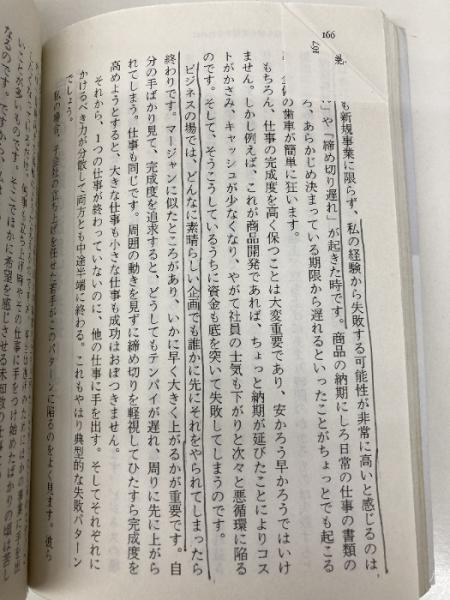 166
も新規事業に限らず、私の経験から失敗する可能性が非常に高いと感じるのは、
や「締め切り遅れ」が起きた時です。商品の納期にしろ日常の仕事の書類の
、あらかじめ決まっている期限から遅れるといったことがちょっとでも起こる
の歯車が簡単に狂います。
もちろん、仕事の完成度を高く保つことは大変重要であり、安かろう早かろうではいけ
ません。しかし例えば、これが商品開発であれば、ちょっと納期が延びたことによりコス
トがかさみ、キャッシュが少なくなり、やがて社員の士気も下がりと次々と悪循環に陥る
のです。そして、そうこうしているうちに資金も底を突いて失敗してしまうのです。
ビジネスの場では、どんなに素晴らしい企画でも誰かに先にそれをやられてしまったら
終わりです。マージャンに似たところがあり、いかに早く大きく上がるかが重要です。自
分の手ばかり見て、完成度を追求すると、どうしてもテンパイが遅れ、周りに先に上がら
れてしまう。仕事も同じです。周囲の動きを見ずに締め切りを軽視してひたすら完成度を
高めようとすると、大きな仕事も小さな仕事も成功はおぼつきません。
それから、1つの仕事が終わっていないのに、他の仕事に手を出す。そしてそれぞれに
かけるべき力が分散して両方とも中途半端に終わる。これもやはり典型的な失敗パターン
でしょう。
私の場合、子会社の立ち上げを任せた若手がこのパターンに陥るのをよく見ます。彼ら